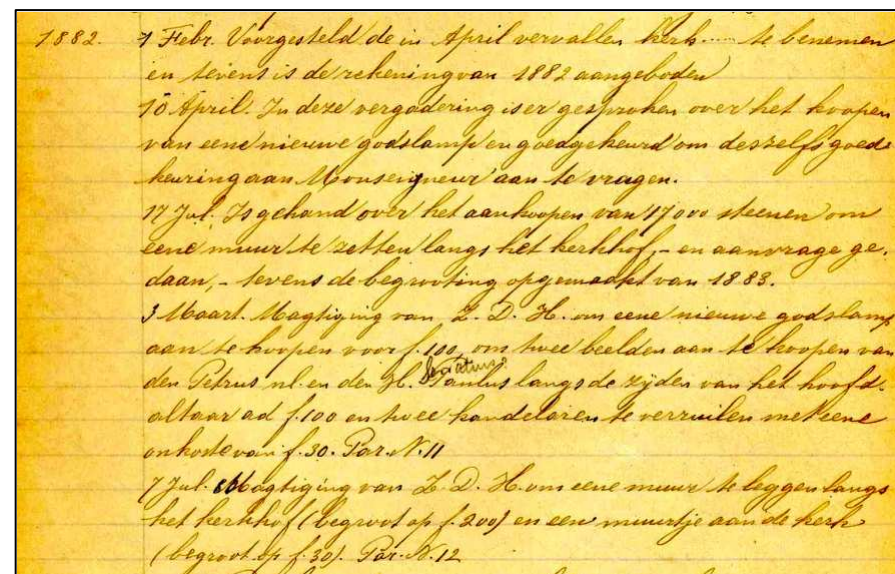 1882. 1 Febr. Voorgesteld de in April vervallen kerk ..... te benemen
en tevens is de rekening van 1882 aangeboden
10 April. In deze vergadering is er gesproken over het koopen
van eene nieuwe godslamp en goedgekeurd om deszelfs goed-
keuring aan Monseigneur aan te vragen.
17 Jul. Is gehand over het aankoopen van 17000 steenen om
eene muur te zetten langs het kerkhof, - en aanvrage ge-
daan, - tevens de begrooting opgemaakt van 1883.
3 Maart. Magtiging van Z. D. H. om eene nieuwe godslamp
aan te koopen voor f. 100, om twee beelden aan te koopen van
den Petrus nl. en den H. Paulus langs de zijden van het hoofd-
altaar ad f. 100 en twee kandelaren te verruilen met eene
onkoste van f. 30. Par. N. 11
7 Jul. Magtiging van Z. D. H. om eene muur te leggen langs
het kerkhof (begroot op f. 200) en een muurtje aan de kerk
(begroot op f. 30). Par. N. 12